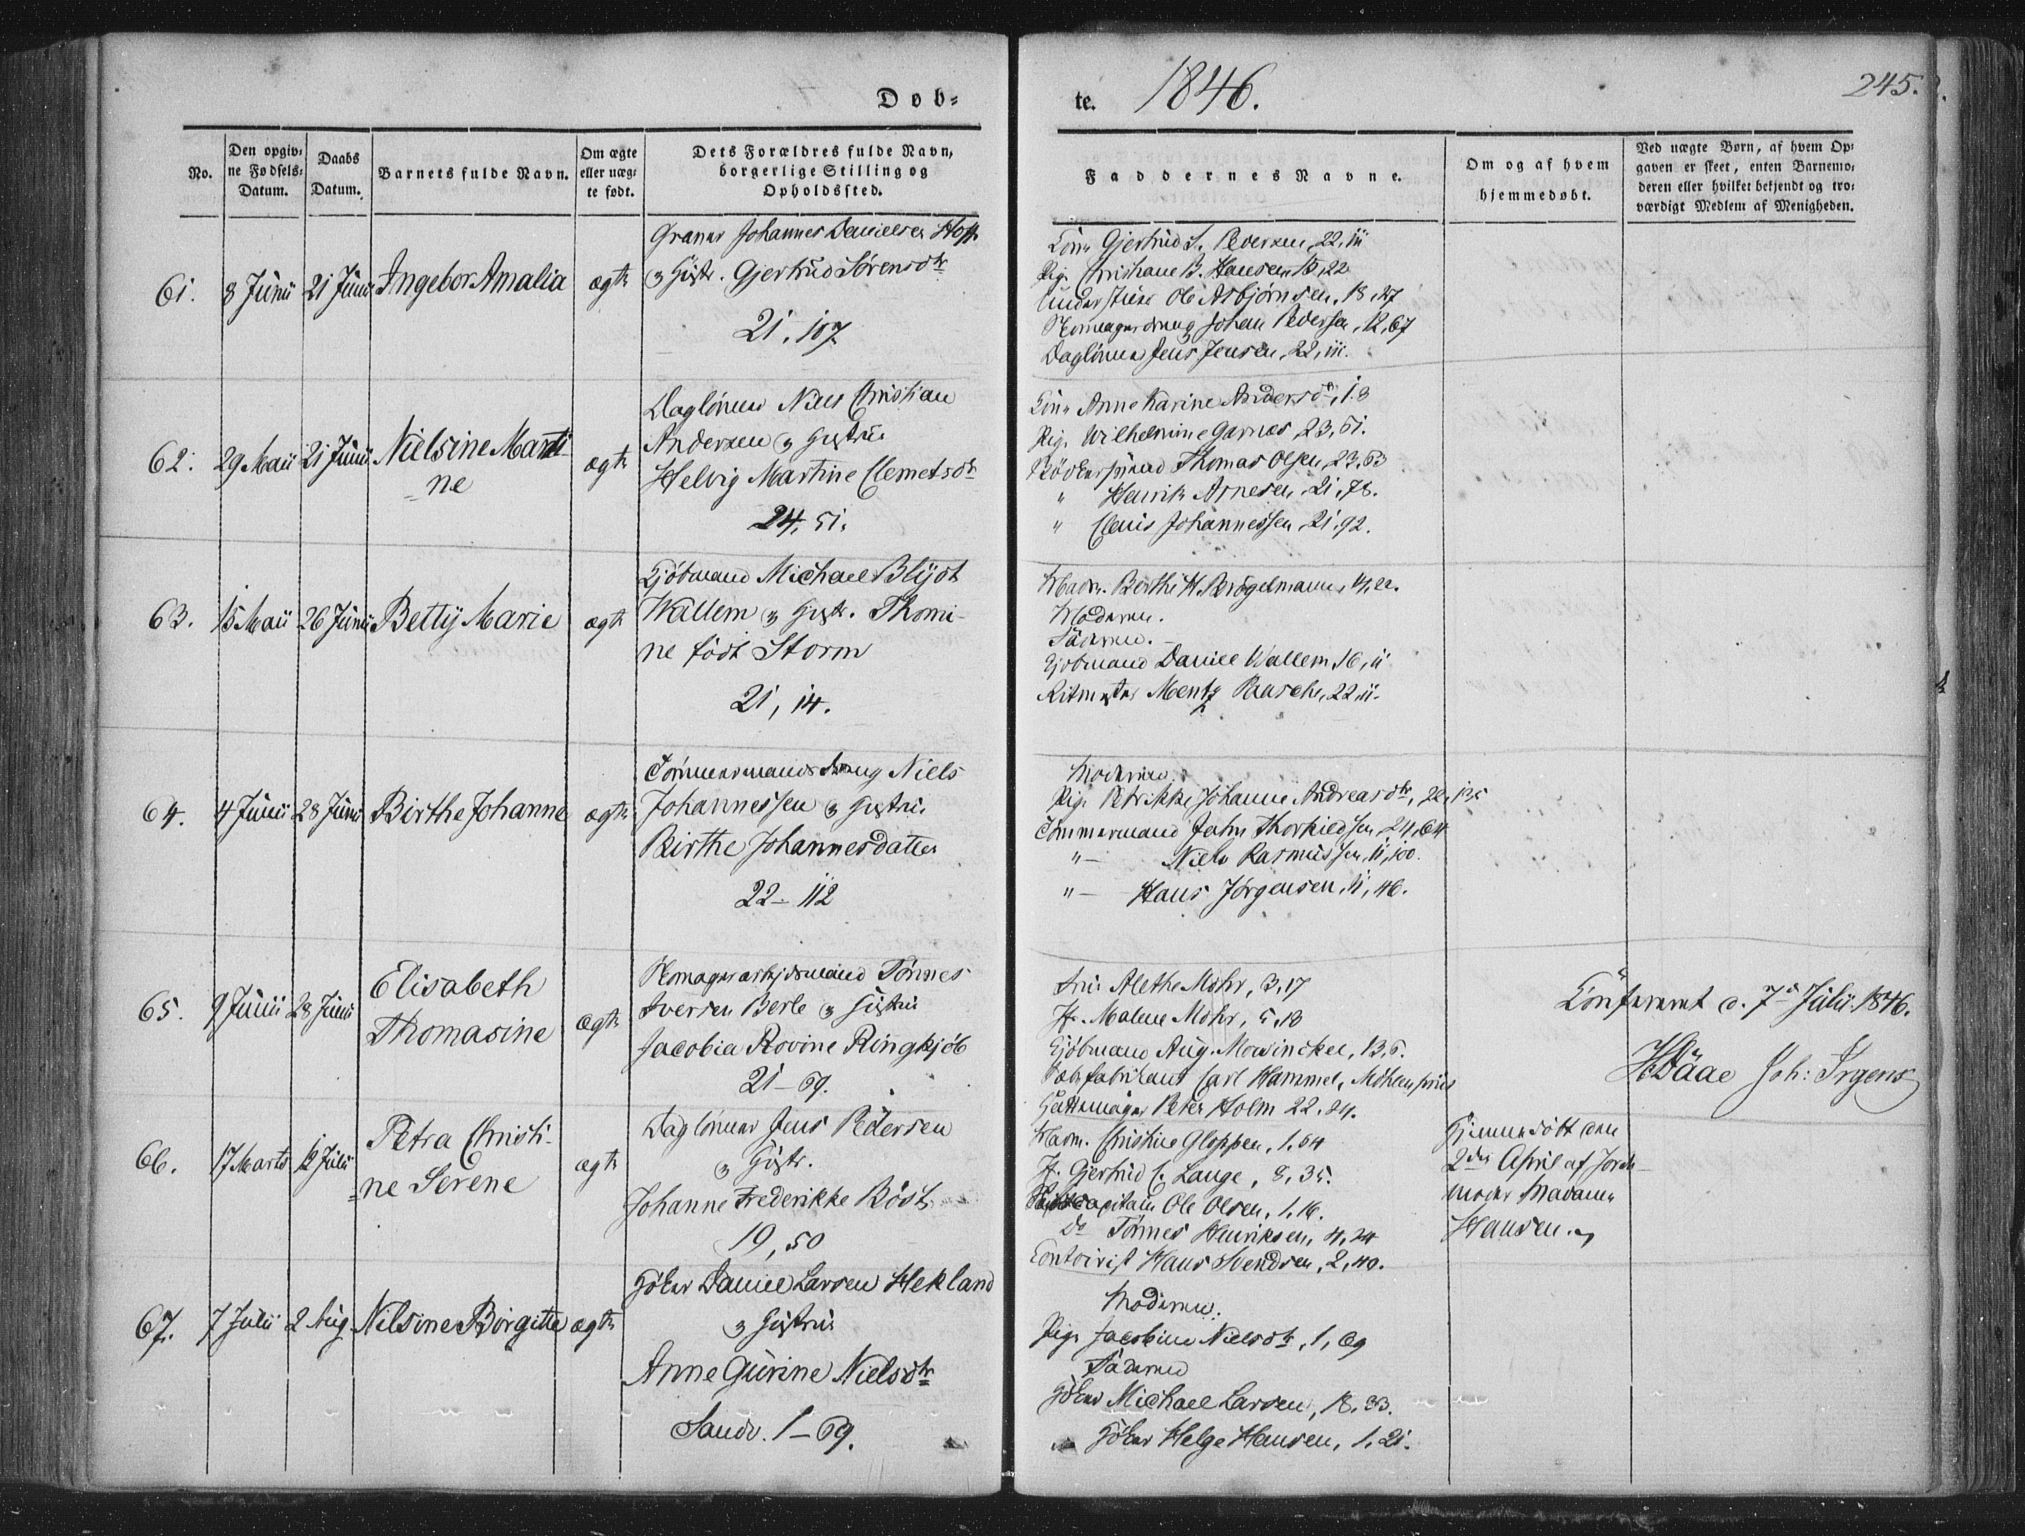 Døb-
te. 1846.
245.
No.
Den opgiv-
ne Fødsels-
Datum.
Daabs
Datum.
Barnets fulde Navn.
Om ægte
eller uæg-
te født.
Dets Forældres fulde Navn,
borgerlige Stilling og
Opholdssted.
Faddernes Navne.
Om og af hvem
hjemmedøbt.
Ved uægte Børn, af hvem Op-
gaven er skeet, enten Barnemo-
deren eller hvilket bekjendt og tro-
værdigt Medlem af Menigheden.
61. 8 Junii 21 Junii Ingebor Amalia ægte
Johannes Danielsen Hop
Gjertrud Sørensdtr
21, 107
Kone Gjertrud S. Pedersen, 22, 111
Pige B. Hansen 15, 22
Ole Asbjørnsen, 18, 27
Johan Pedersen, 12, 67
Dagløner Jens Jensen, 22, 111.
62. 29 Maii 21 Junii Nielsine Marti-
ne
ægte
Dagløner Niels Christian
Andersen & Hustrue
Helvig Martine Clemetsdtr
24, 51.
Kone Anne Karine Andersdtr, 1.3
Pige Wilhelmine Garnæs, 23, 51.
Bødkersvend Thomas Olsen, 23, 63
" Henrik Arnesen, 21, 78.
" Claus Johannessen, 21, 92.
63. 15 Maii 26 Junii Betty Marie ægte
Kjøbmand Michael Blydt
Wallem & Hustr. Thomi-
ne født Storm
21, 14.
Madm. Berthe H. Brøgelmann, 14, 22.
Moderen.
Faderen.
Kjøbmand Daniel Wallem, 16, 11
Ritmester Mentz Paasche, 22, 111.
64. 4 Junii 28 Junii Birthe Johanne ægte
Tømmermandsdreng Niels
Johannessen & Hustrue
Birthe Johannesdatter
22 - 112
Moderen.
Pige Petrikke Johanne Andreasdtr, 22, 125
Tømmermand John Thorkildsen, 24, 64
" - Niels Rasmussen, 11, 100.
" - Hans Jørgensen, 11, 46.
65. 9 Junii 28 Junii
Elisabeth
Thomasine
ægte
Tønnes
Iversen Berle & Hustrue
Jacobia Rovine Ringkjøb
21 - 69.
Frue Alethe Mohr, 3, 17
Jf. Malene Mohr, 5, 18
Kjøbmand Aug. Mowinckel, 13, 6.
Carl Hammel, Møhlenpriis
Peter Holm 22, 84.
Confereret d. 7de Julii 1846.
Joh: Irgens
66. 17 Marts 12 Julii
Petra Christi-
ne Serene
ægte
Dagløner Jens Pedersen
& Hustr.
Johanne Frederikke Bøst
19, 50
Madm. Christine Gloppen, 1, 64
Jf. Gjertrud C. Lange, 8, 35.
Ole Olsen, 1, 16.
Do Tønnes Henriksen, 4, 24
Contoirist Hans Svendsen, 2, 40.
Hjemmedøbt den
2den April af Jorde-
moder Madame
Hansen.
67. 7 Julii 2 Aug. Nilsine Børgitte ægte
Høker Daniel Larsen Hekland
& Hustrue
Anne Gurine Nielsdtr
Sandv. 1 - 69.
Moderen.
Pige Jacobine Nielsdtr, 1, 69
Faderen
Høker Michael Larsen, 18, 33.
Høker Helge Hansen, 1, 21.